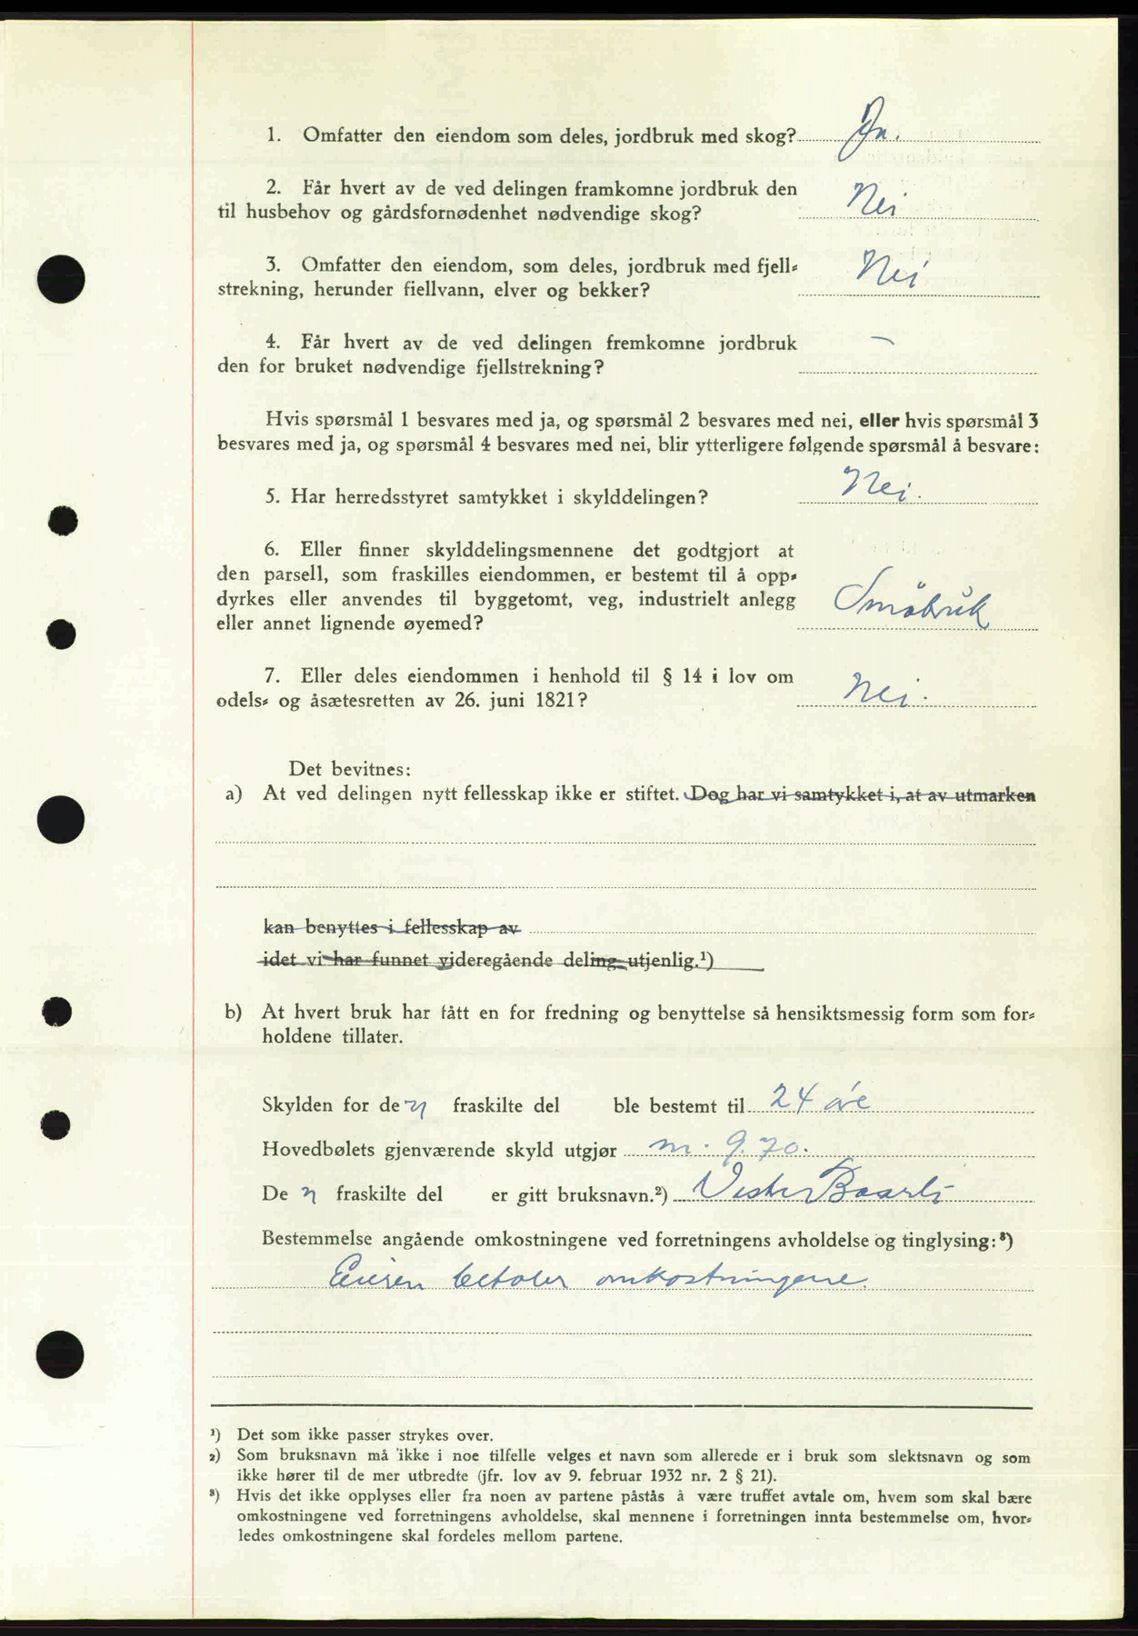 1. Omfatter den eiendom som deles, jordbruk med skog? Ja.
2. Får hvert av de ved delingen framkomne jordbruk den
til husbehov og gårdsfornødenhet nødvendige skog? Nei
3. Omfatter den eiendom, som deles, jordbruk med fjell-
strekning, herunder fiellvann, elver og bekker? Nei
4. Får hvert av de ved delingen fremkomne jordbruk
den for bruket nødvendige fjellstrekning? -
Hvis spørsmål 1 besvares med ja, og spørsmål 2 besvares med nei, eller hvis spørsmål 3
besvares med ja, og spørsmål 4 besvares med nei, blir ytterligere følgende spørsmål å besvare:
5. Har herredsstyret samtykket i skylddelingen? Nei.
6. Eller finner skylddelingsmennene det godtgjort at
den parsell, som fraskilles eiendommen, er bestemt til å opp-
dyrkes eller anvendes til byggetomt, veg, industrielt anlegg
eller annet lignende øyemed? Småbruk
7. Eller deles eiendommen i henhold til § 14 i lov om
odels- og åsætesretten av 26. juni 1821? Nei.
Det bevitnes:
a) At ved delingen nytt fellesskap ikke er stiftet. Dog har vi samtykket i, at av utmarken
kan benyttes i fellesskap av
idet vi har funnet videregående deling utjenlig.¹)
b) At hvert bruk har fått en for fredning og benyttelse så hensiktsmessig form som for-
holdene tillater.
Skylden for den fraskilte del ble bestemt til 24 øre
Hovedbølets gjenværende skyld utgjør m. 9.70.
De n fraskilte del er gitt bruksnavn.²) Vestre Baarli
Bestemmelse angående omkostningene ved forretningens avholdelse og tinglysing:³)
Eieren betaler omkostningene.
¹) Det som ikke passer strykes over.
²) Som bruksnavn må ikke i noe tilfelle velges et navn som allerede er i bruk som slektsnavn og som
ikke hører til de mer utbredte (jfr. lov av 9. februar 1932 nr. 2 § 21).
³) Hvis det ikke opplyses eller fra noen av partene påstås å være truffet avtale om, hvem som skal bære
omkostningene ved forretningens avholdelse, skal mennene i forretningen innta bestemmelse om, hvor-
ledes omkostningene skal fordeles mellom partene.